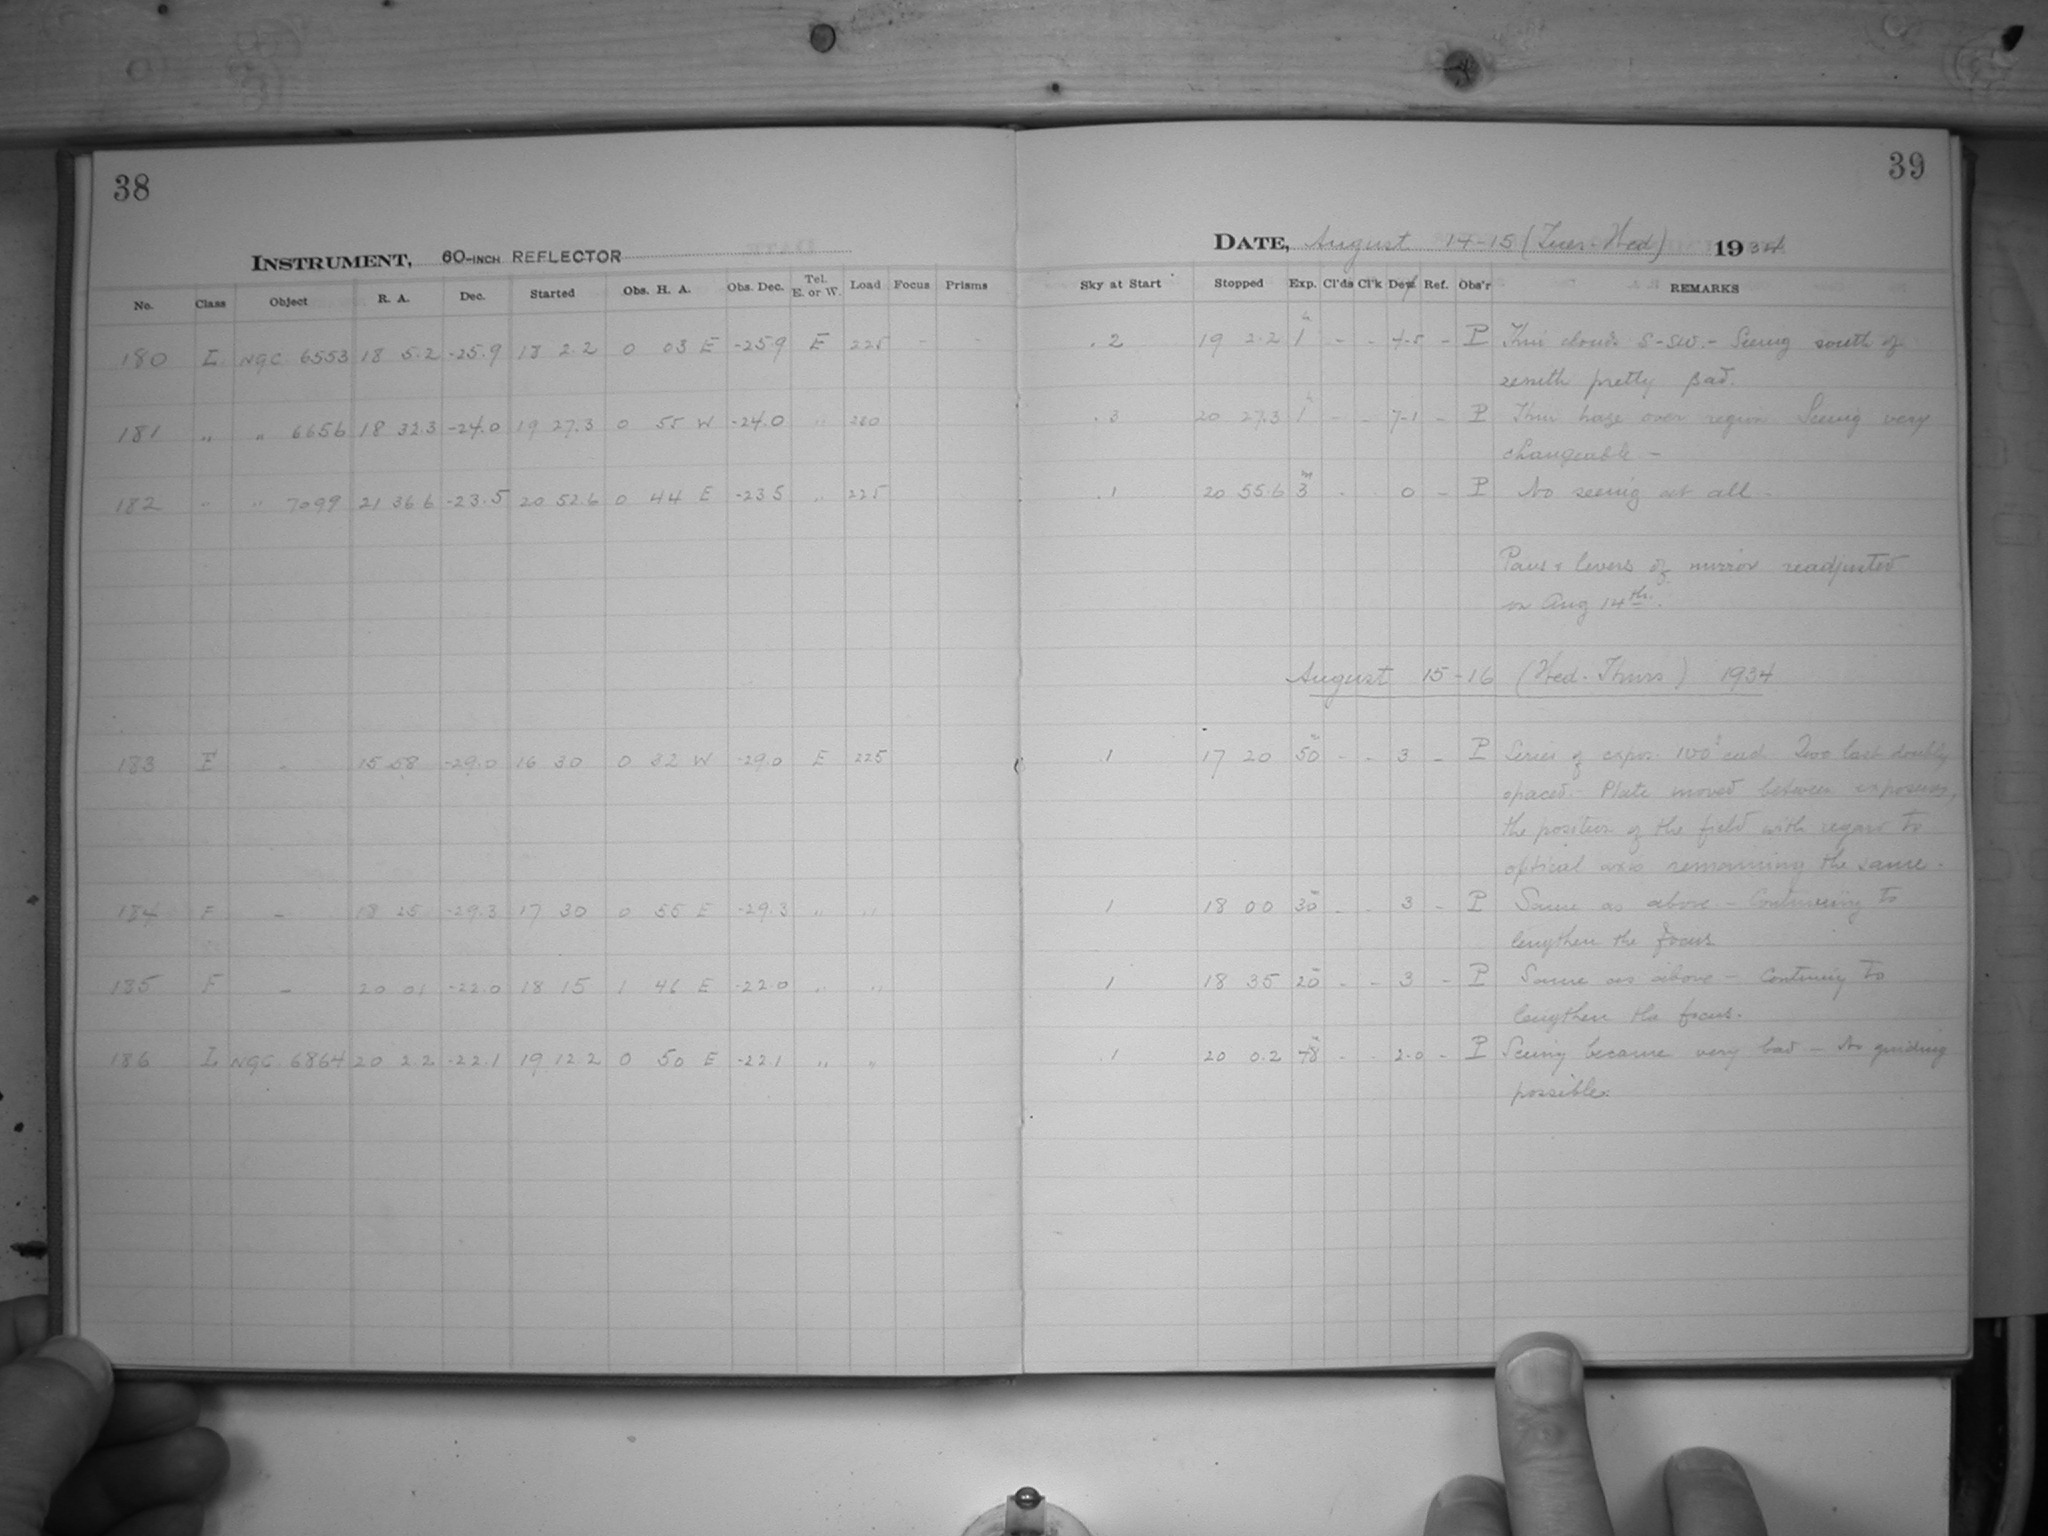 38
INSTRUMENT, 60-INCH REFLECTOR
No. Class Object R. A. Dec. Started Obs. H. A. Obs. Dec. Tel. E. or W. Load Focus Prisms
180 L NGC 6553 18 5.2 -25.9 18 2.2 0 03 E -25.9 E 225 - -
181 " " 6656 18 32.3 -24.0 19 27.3 0 55 W -24.0 " 280
182 " " 7099 21 36.6 -23.5 20 52.6 0 44 E -23.5 " 225
183 F - 15 58 -29.0 16 30 0 32 W -29.0 E 225
184 F - 18 25 -29.3 17 30 0 55 E -29.3 " "
185 F - 20 01 -22.0 18 15 1 46 E -22.0 " "
186 L NGC 6864 20 2.2 -22.1 19 12.2 0 50 E -22.1 " "
39
DATE, August 14-15 (Tues-Wed) 1934
Sky at Start Stopped Exp. Cl'ds Cl'k Dew Ref. Obs'r REMARKS
.2 19 2.2 1h - - 4-5 - P Thin clouds S-SW. - Seeing south of
zenith pretty bad.
.3 20 27.3 1h - - 7-1 - P Thin haze over region. Seeing very
changeable -
.1 20 55.6 3m - 0 - P No seeing at all -
levers of mirror readjusted
on Aug 14th.
August 15-16 (Wed-Thurs) 1934
.1 17 20 50m - - 3 - P Series of expos. 100s each. Two last doubly
spaced. - Plate moved between exposures,
the position of the field with regard to
optical axis remaining the same.
1 18 00 30m - - 3 - P Same as above - Continuing to
lengthen the focus
1 18 35 20m - - 3 - P Same as above - Continuing to
lengthen the focus.
.1 20 0.2 48m - - 2-0 - P Seeing became very bad - No guiding
possible.